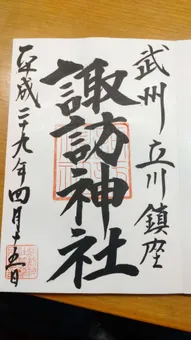 武州 立川 鎮座
諏訪神社
平成二十九年四月十五日